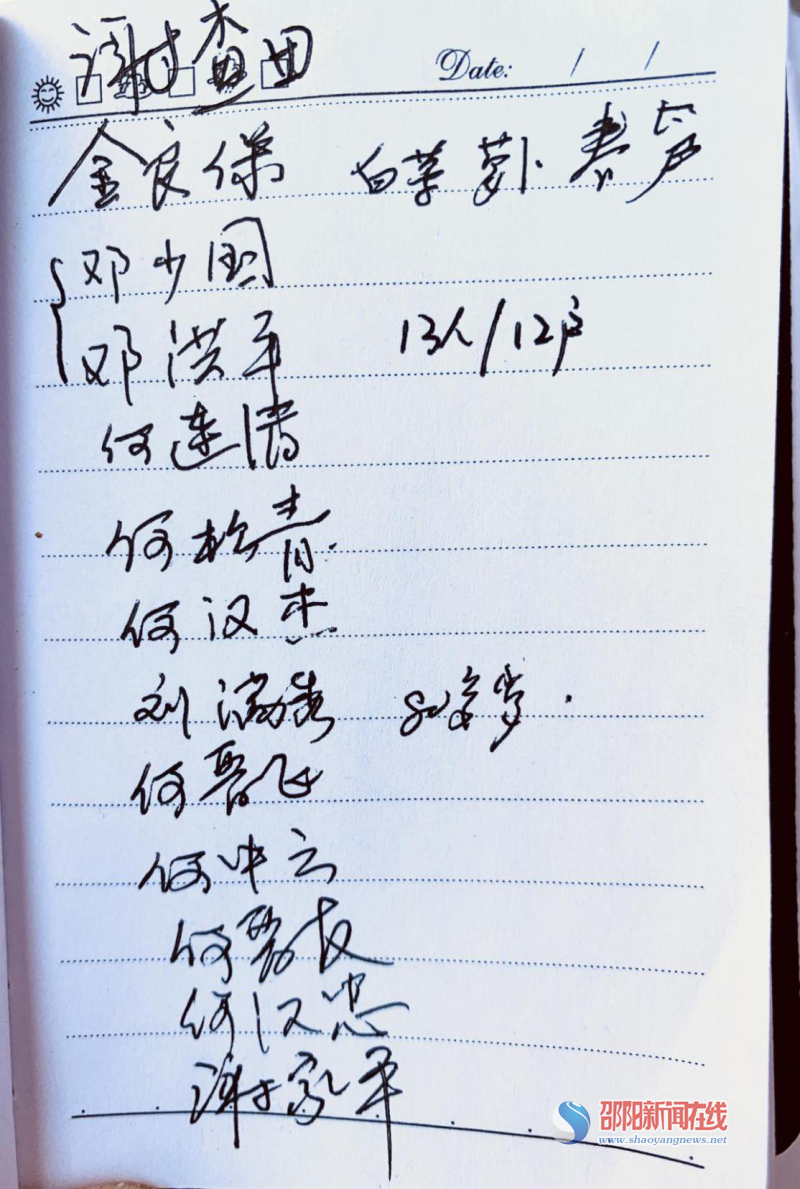 查田
Date: / /
金良保 白菜 萝卜
邓少国
邓洪平 13人/12户
何连清
何松青
何汉杰
刘满秀
何君飞
何中云
何君友
何汉忠
谢家平
邵阳新闻在线
www.shaoyangnews.net